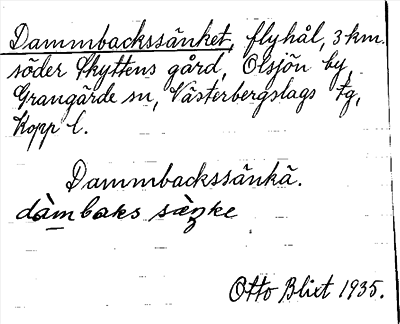 Dammbackssänket, flyhål, 3 km.
söder Skyttens gård, Olsjön by
Grangärde sn, Västerbergslags tg,
Kopp l.
Dammbackssänkä.
dàmbaks sæ̀ŋke
Otto Blixt 1935.